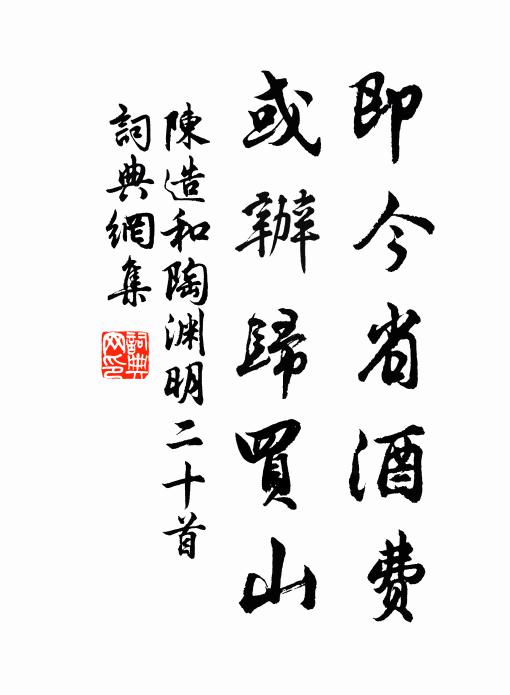 即今省酒費
或辦歸買山
陳造和陶渊明二十首
詞典網集
詞典
网印